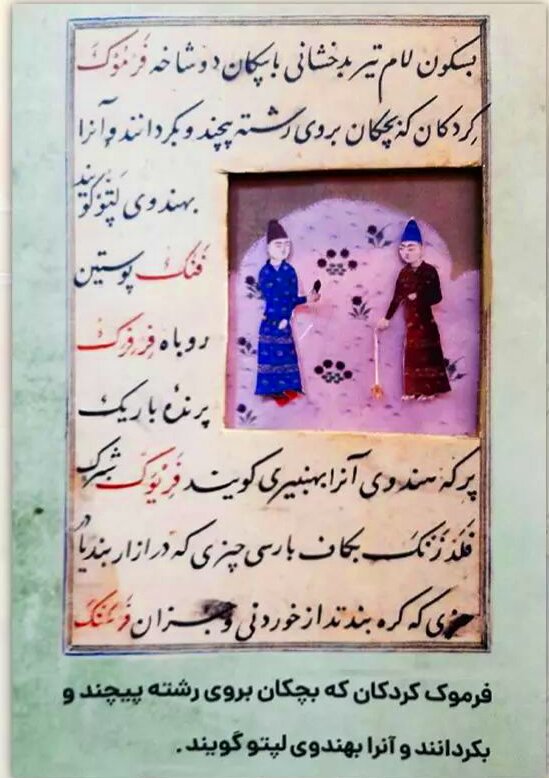 بسکون لام تیر بدخشانی با پیکان دوشاخه فرموک
کردکان که بچکان بروی رشته پیچند و بکردانند و آنرا
بهندوی لپتو کویند
فنک پوستین
روباه فرفرک
پرندهٔ باریک
پر که هندوی آنرا بهنبیری کویند فریوک شبرک
بکاف پارسی چیزی که در ازار بندیا در
چیزی که کره بندند از خوردنی و جز آن
فرموک کردکان که بچکان بروی رشته پیچند و
بکردانند و آنرا بهندوی لپتو گویند.